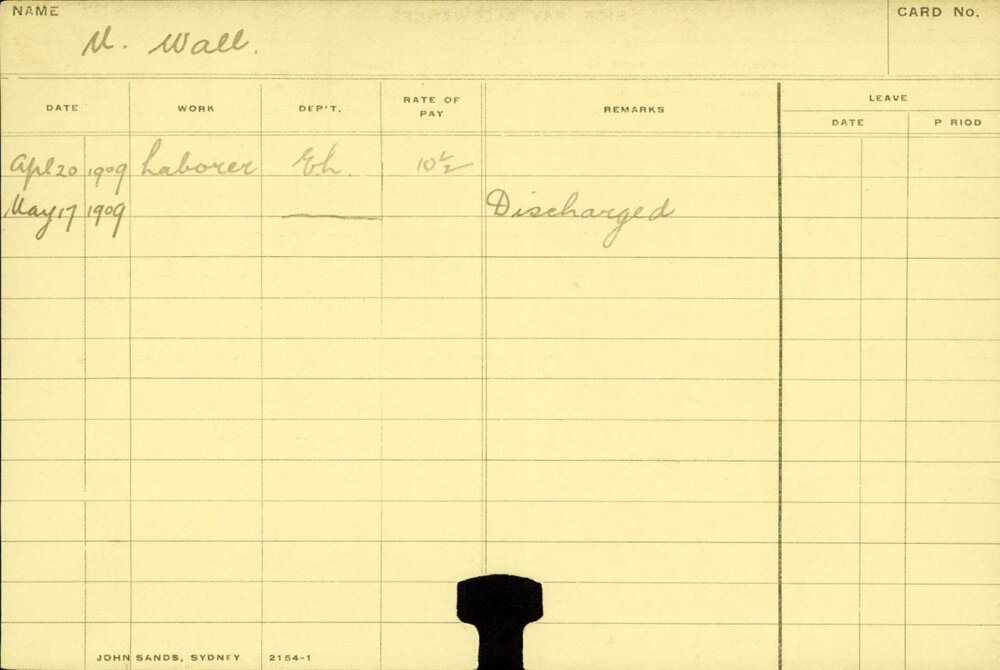 NAME
CARD No.
N. Wall.
DATE WORK DEP'T. RATE OF PAY REMARKS LEAVE
DATE P RIOD
Apl 20 1909 Laborer Eh. 10½
May 17 1909 Discharged
JOHN SANDS, SYDNEY 2154-1